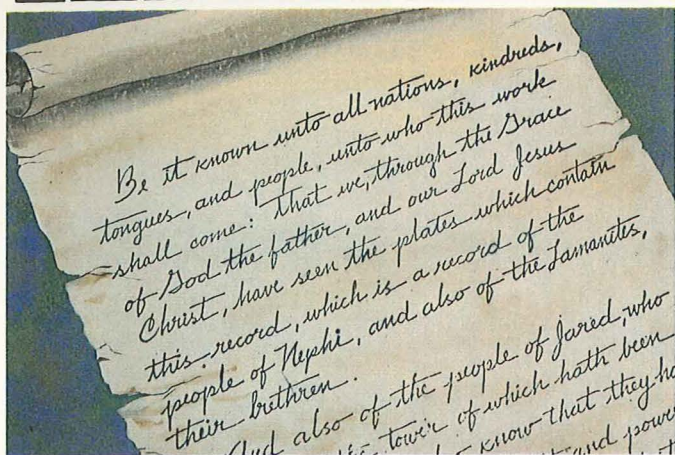 Be it known unto all nations, kindreds,
tongues, and people, unto who this work
shall come: That we, through the Grace
of God the father, and our Lord Jesus
Christ, have seen the plates which contain
this record, which is a record of the
people of Nephi, and also of the Lamanites,
their brethren.
And also of the people of Jared, who
tower of which hath been
know that they
and power